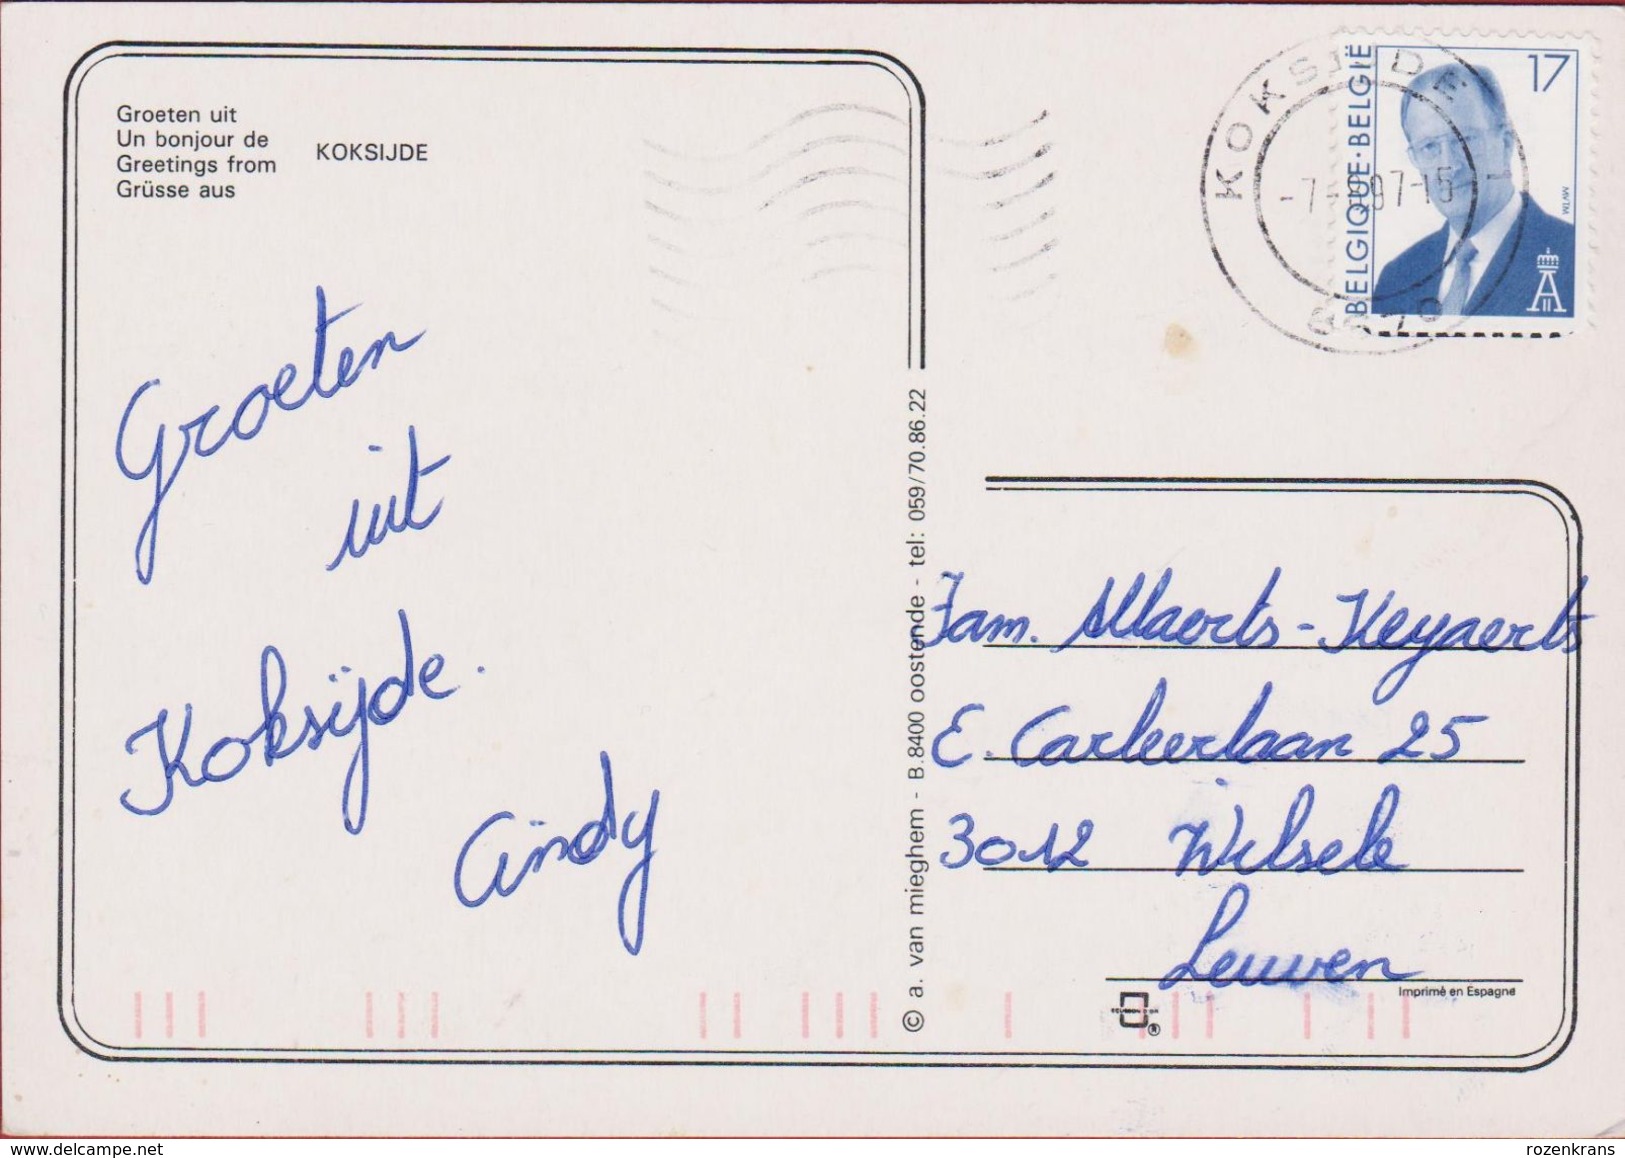 Groeten uit
Un bonjour de
Greetings from
Grüsse aus
KOKSIJDE
Groeten
uit
Koksijde.
Cindy
© a. van mieghem - B.8400 oostende - tel: 059/70.86.22
KOKSIJDE 1
-7- 97-15
8670
17
BELGIQUE·BELGIË
MVTM
Fam. Allaerts-Keyaerts
E. Carleerlaan 25
3012 Wilsele
Leuven
Imprimé en Espagne
®
rozenkrans